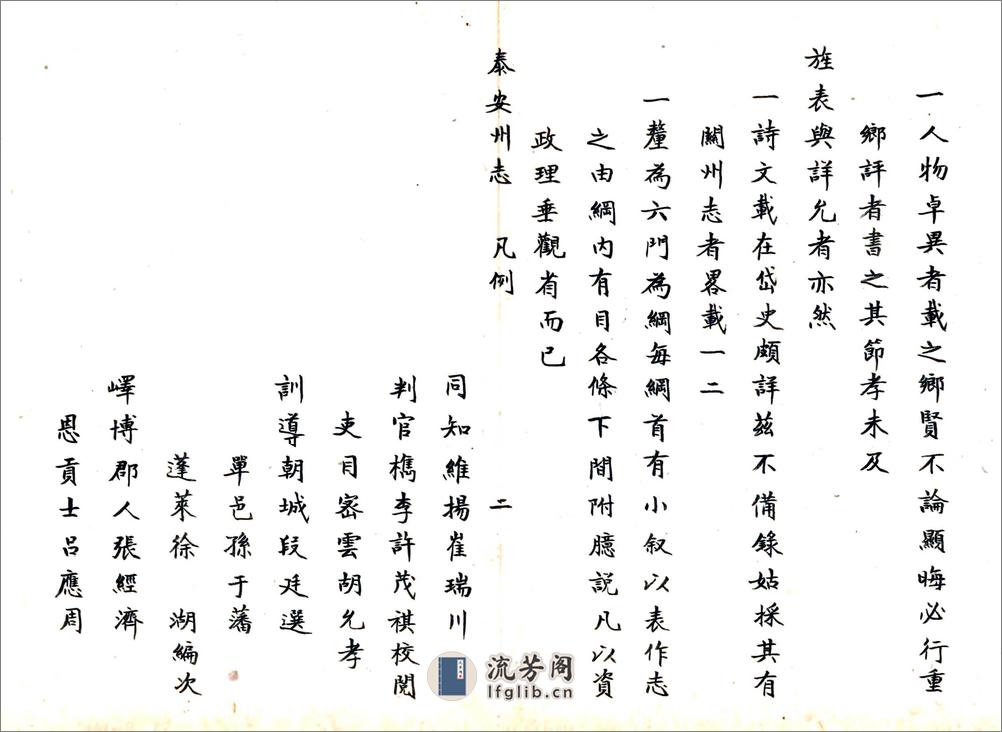 一人物卓異者載之鄉賢不論顯晦必行重
鄉評者書之其節孝未及
旌表與詳允者亦然
一詩文載在岱史頗詳茲不備錄姑採其有
關州志者畧載一二
一釐為六門為綱每綱首有小叙以表作志
之由綱內有目各條下間附臆説凡以資
政理垂觀省而已
泰安州志 凡例 二
同知維揚崔瑞川
判官檇李許茂祺校閱
吏目密雲胡允孝
訓導朝城段廷選
單邑孫于藩
蓬萊徐 湖編次
嶧博郡人張經濟
恩貢士呂應周
流芳阁
lfglib.cn